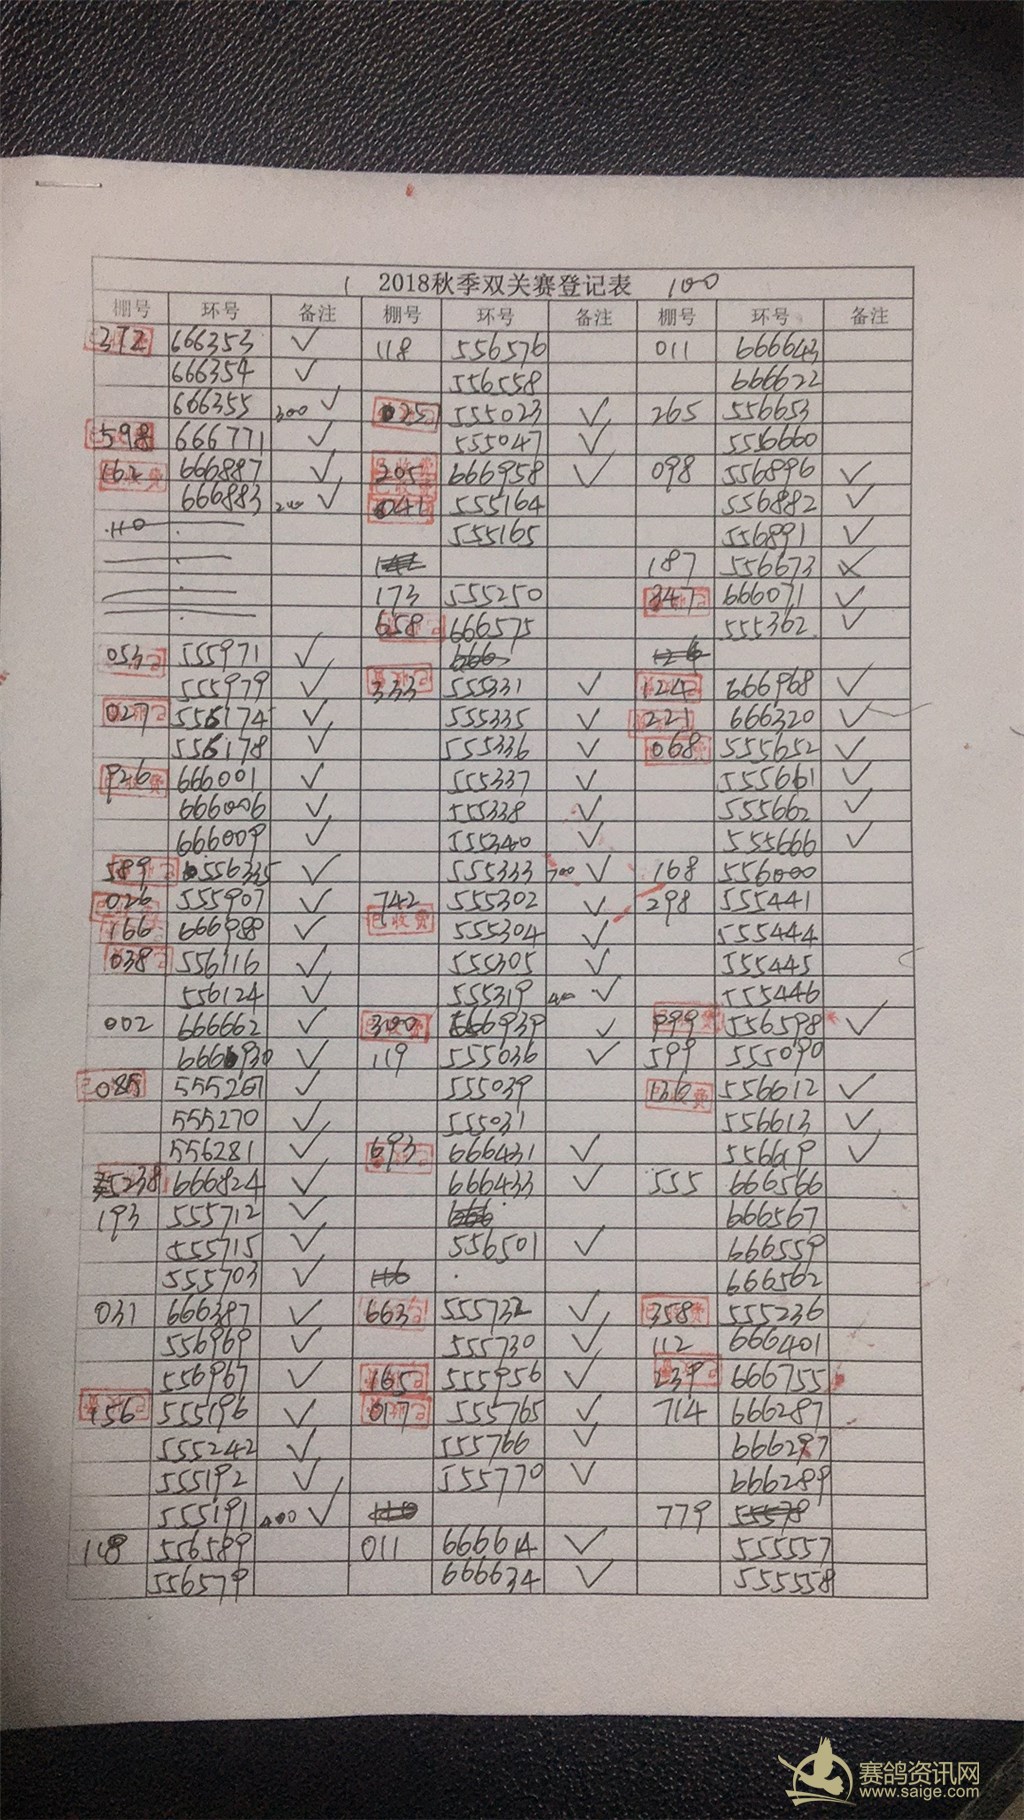 1 2018秋季双关赛登记表 100
棚号 环号 备注 棚号 环号 备注 棚号 环号 备注
372 666353 ✓ 118 556576 011 666643
666354 ✓ 556558 666622
666355 300 ✓ 025 555023 ✓ 265 556653
598 666771 ✓ 555047 ✓ 556660
162 666887 ✓ 205 666958 ✓ 098 556896 ✓
666883 200 ✓ 041 555164 556882 ✓
110 555165 556891 ✓
187 556673 ✓
173 555250 347 666071 ✓
658 666575 555362 ✓
053 555971 ✓ 666 126
555979 ✓ 333 555331 ✓ 124 666968 ✓
027 556174 ✓ 555335 ✓ 221 666320 ✓
556178 ✓ 555336 ✓ 068 555652 ✓
926 666001 ✓ 555337 ✓ 555661 ✓
666006 ✓ 555338 ✓ 555662 ✓
666009 ✓ 555340 ✓ 555666 ✓
589 556335 ✓ 555333 700 ✓ 168 556000
026 555907 ✓ 742 555302 ✓ 298 555441
166 666988 ✓ 已收费 555304 ✓ 555444
038 556116 ✓ 555305 ✓ 555445
556124 ✓ 555319 400 ✓ 555446
002 666662 ✓ 300 666939 ✓ 999 556598 ✓
666930 ✓ 119 555036 ✓ 599 555090
085 555261 ✓ 555039 136 556612 ✓
555270 ✓ 555031 556613 ✓
556281 ✓ 693 666431 ✓ 556619 ✓
5238 666824 ✓ 666433 ✓ 555 666566
193 555712 ✓ 666 666567
555715 ✓ 556501 ✓ 666559
555703 ✓ 116 666562
031 666387 ✓ 663 555732 ✓ 358 555236
556969 ✓ 555730 ✓ 112 666401
556967 ✓ 165 555956 ✓ 239 666755
156 555196 ✓ 017 555765 ✓ 714 666287
555242 ✓ 555766 ✓ 666297
555192 ✓ 555770 ✓ 666289
555191 400 ✓ 779 55578
118 556589 011 666614 ✓ 555557
556579 666634 ✓ 555558
赛鸽资讯网
www.saige.com